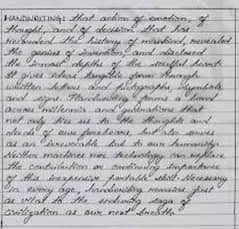 HANDWRITING: that action of emotion, of
thought, and of decision that has
recorded the history of mankind, revealed
the genius of invention, and disclosed
the inmost depths of the soulful heart.
It gives ideas tangible form through
written letters and pictographs, symbols
and signs. Handwriting forms a bond
across millennia and generations that
not only ties us to the thoughts and
deeds of our forebears, but also serves
as an irrevocable link to our humanity.
Neither machines nor technology can replace
the contribution or continuing importance
of this inexpensive portable skill. Necessary
in every age, handwriting remains just
as vital to the enduring saga of
civilization as our next breath.